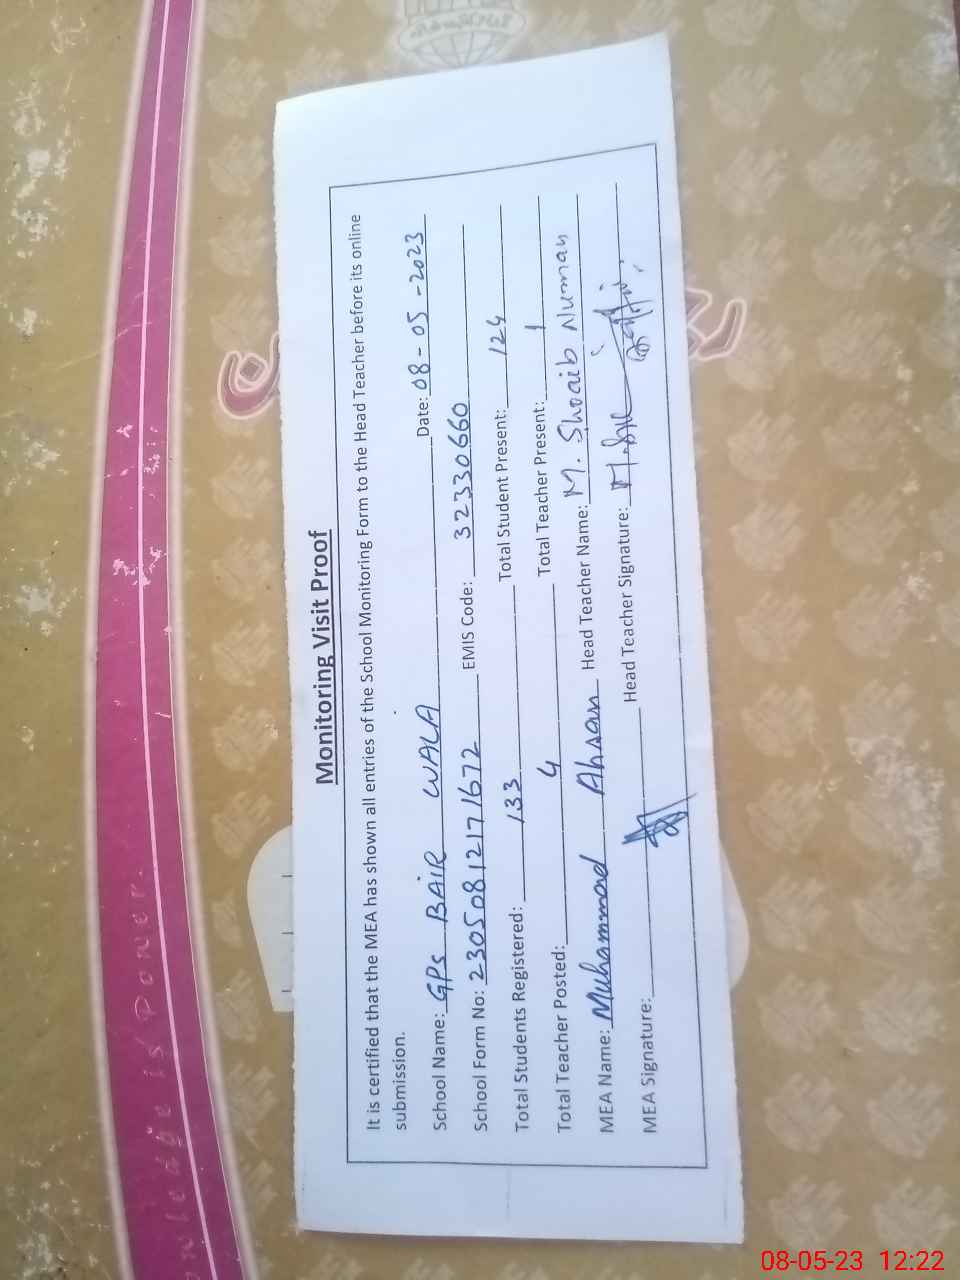 Monitoring Visit Proof
It is certified that the MEA has shown all entries of the School Monitoring Form to the Head Teacher before its online
submission.
School Name: GPS BAIR WALA Date: 08-05-2023
School Form No: 2305081217 1672 EMIS Code: 32330660
Total Students Registered: 133 Total Student Present: 124
Total Teacher Posted: 4 Total Teacher Present: 1
MEA Name: Muhammad Ahsan Head Teacher Name: M. Shoaib Numan
MEA Signature: Head Teacher Signature:
Knowledge is Power.
08-05-23 12:22